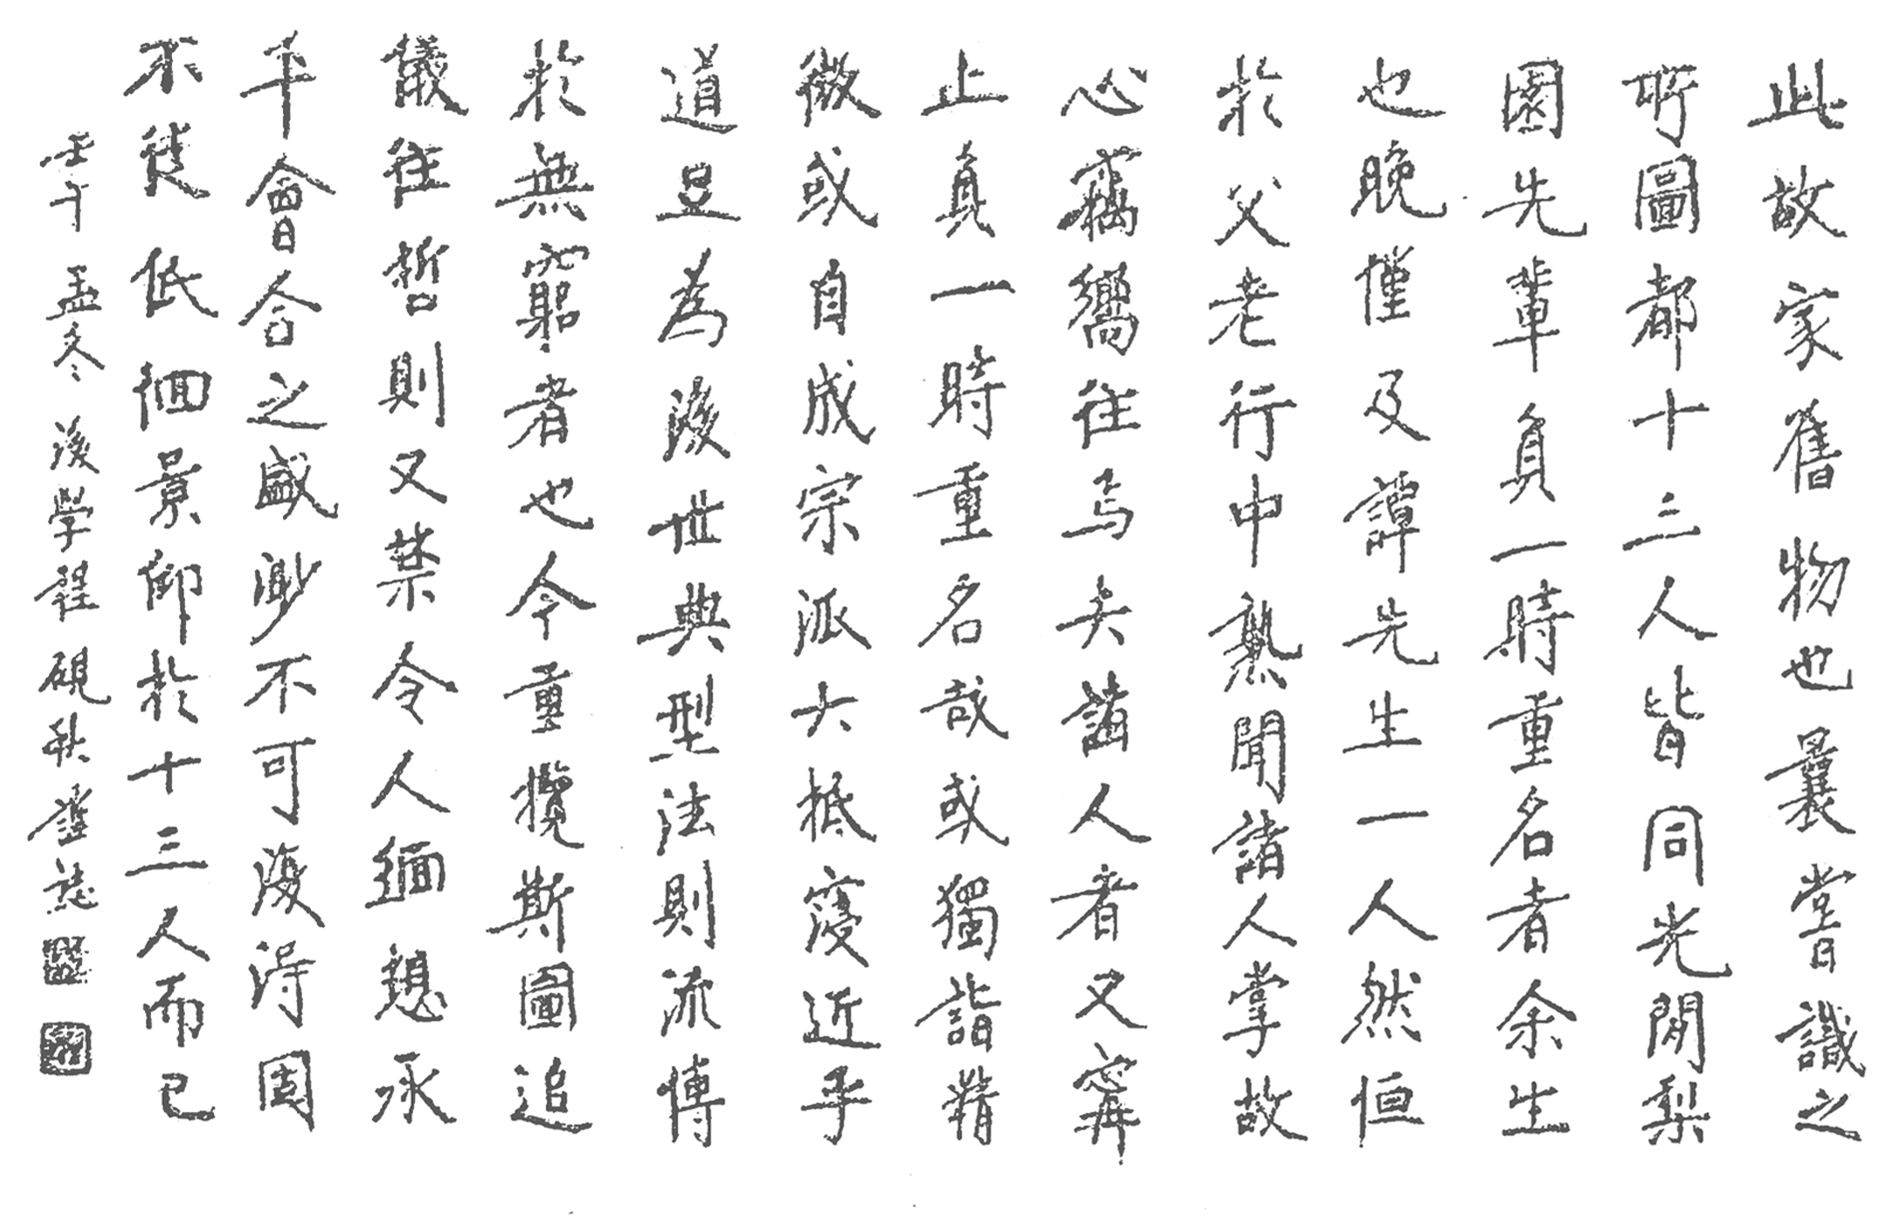 此故家舊物也曩嘗識之
所圖都十三人皆同光間梨
園先輩負一時重名者余生
也晚僅及譚先生一人然恒
於父老行中熟聞諸人掌故
心竊嚮往焉夫諸人者又寧
止負一時重名哉或獨詣精
微或自成宗派大抵寖近乎
道足為後世典型法則流傳
於無窮者也今重攬斯圖追
儀往哲則又禁令人緬想承
平會合之盛渺不可復得固
不徒低佪景仰於十三人而已
壬午孟冬後學程硯秋謹誌